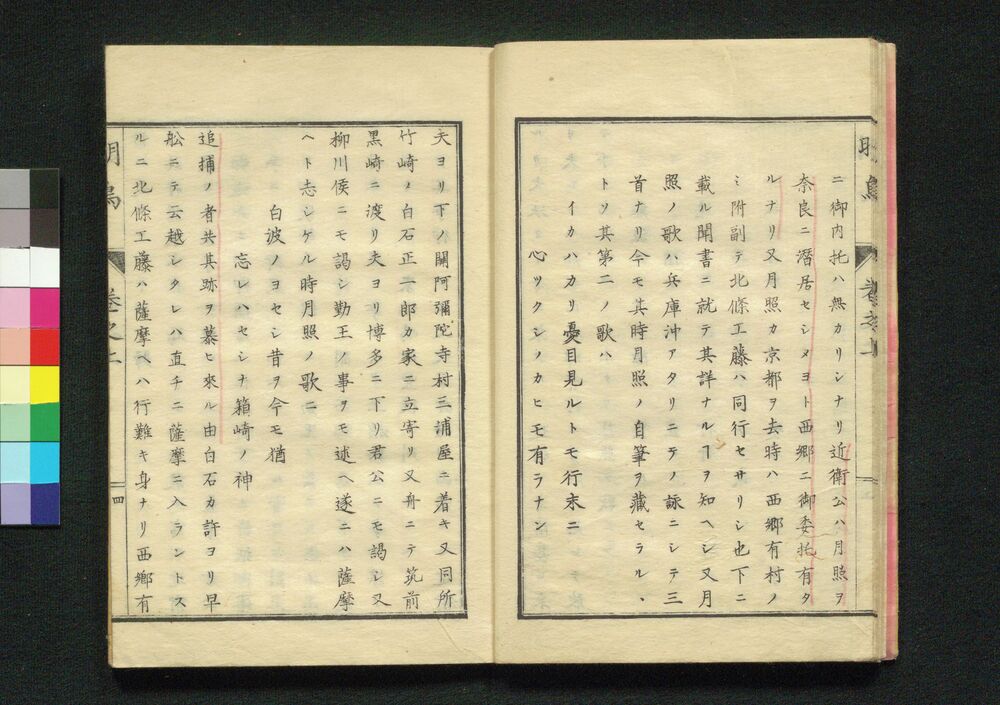 ニ御内托ハ無カリシナリ近衛公ハ月照ヲ
奈良ニ潛居セシメヨト西郷ニ御委托有タ
ルナリ又月照カ京都ヲ去時ハ西郷有村ノ
ミ附副テ北條工藤ハ同行セサリシ也下ニ
載ル聞書ニ就テ其詳ナルヿヲ知ヘシ又月
照ノ歌ハ兵庫沖アタリニテノ詠ニシテ三
首ナリ今モ其時月照ノ自筆ヲ藏セラル、
トソ其第二ノ歌ハ
イカハカリ憂目見ルトモ行末ニ
心ツクシノカヒモ有ラナン
夫ヨリ下ノ關阿彌陀寺村三浦屋ニ着キ又同所
竹崎ノ白石正一郎カ家ニ立寄リ又舟ニテ筑前
黒崎ニ渡リ夫ヨリ博多ニ下リ君公ニモ謁シ又
柳川侯ニモ謁シ勤王ノ事ヲモ述ヘ遂ニハ薩摩
ヘト志シケル時月照ノ歌ニ
白波ノヨセシ昔ヲ今モ猶
忘レハセシナ箱崎ノ神
追捕ノ者共其跡ヲ慕ヒ來ル由白石カ許ヨリ早
舩ニテ云越シタレハ直チニ薩摩ニ入ラントス
ルニ北條工藤ハ薩摩ヘハ行難キ身ナリ西鄉有
明烏
卷之上
四